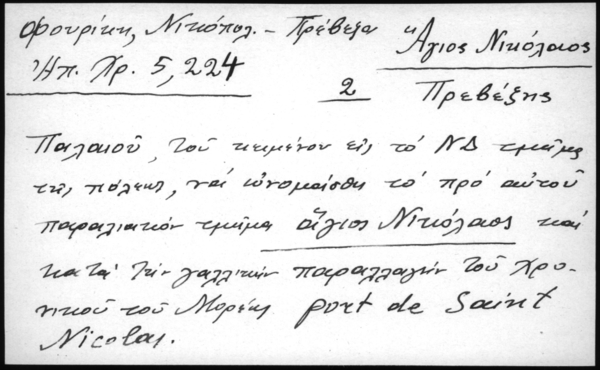 Φουρίκη, Νικόπολ. - Πρέβεζα
Ἠπ. Χρ. 5, 224
Ἅγιος Νικόλαος
2 Πρεβέζης
Παλαιοῦ, τοῦ κειμένου εἰς τὸ ΝΔ τμῆμα
τῆς πόλεως, καὶ ὠνομάσθη τὸ πρὸ αὐτοῦ
παραλιακὸν τμῆμα ἅγιος Νικόλαος καὶ
κατὰ τὴν γαλλικὴν παραλλαγὴν τοῦ Χρο-
νικοῦ τοῦ Μορέως port de Saint
Nicolas.